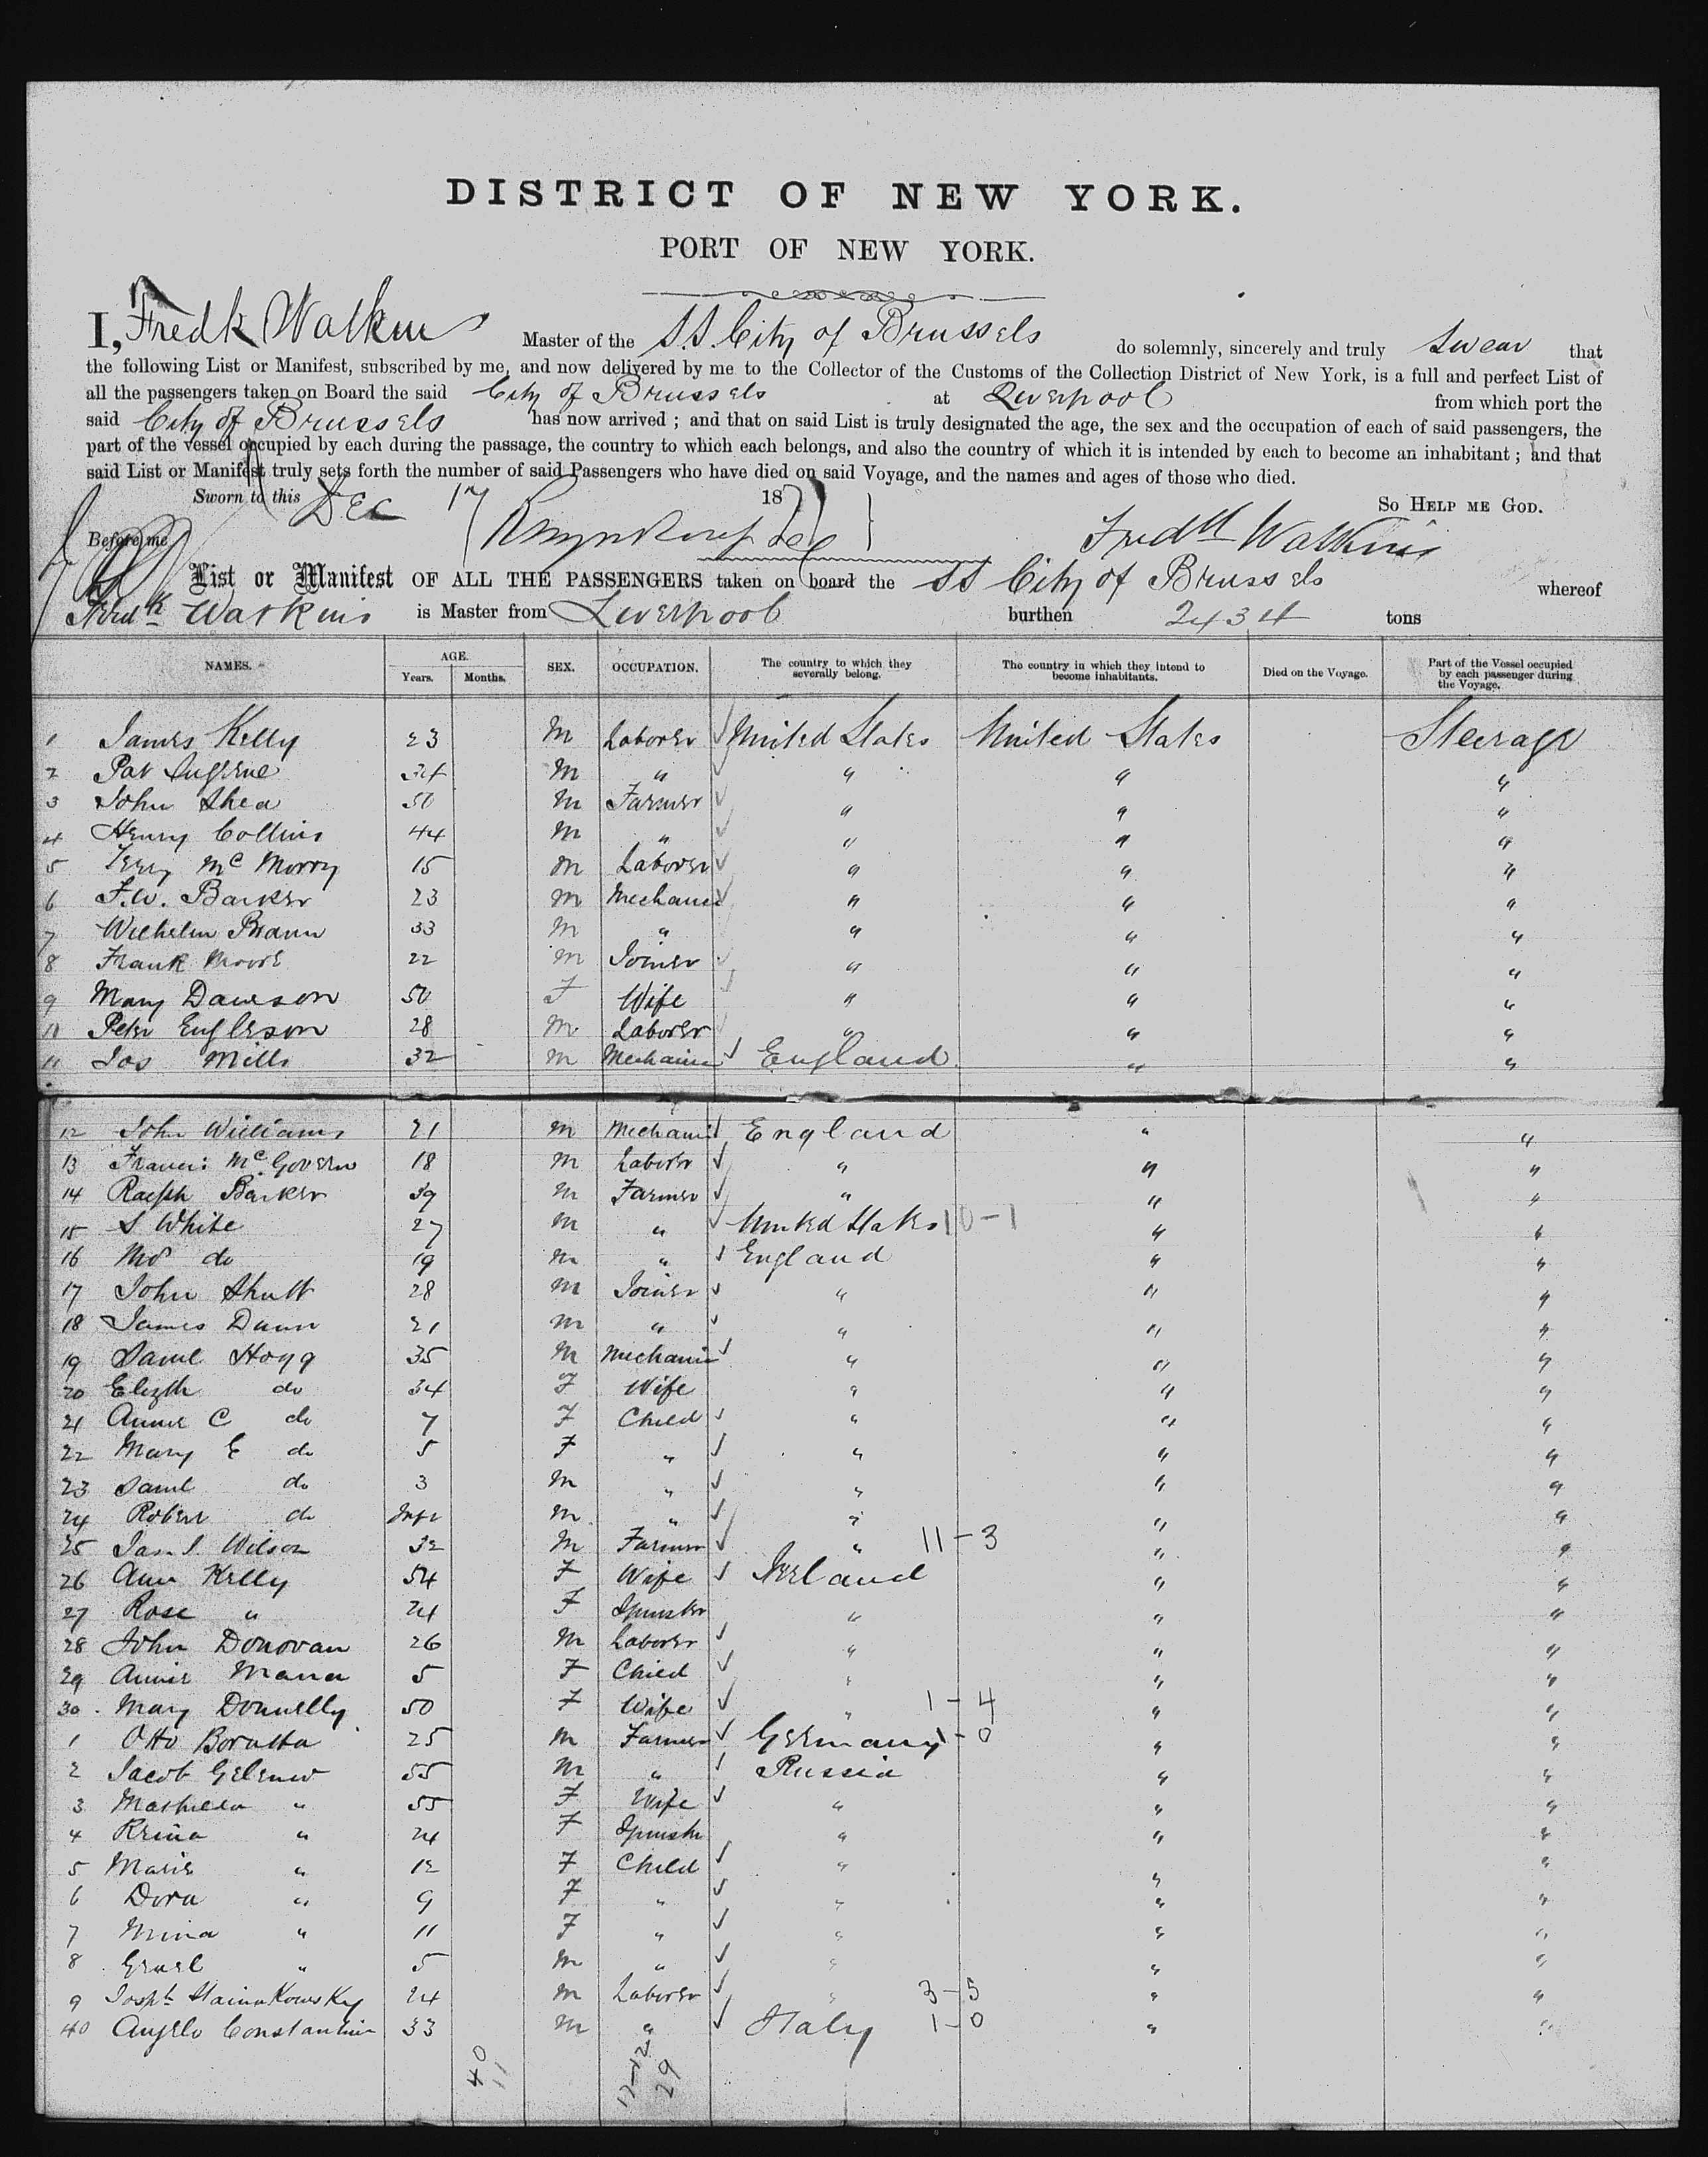 DISTRICT OF NEW YORK.
PORT OF NEW YORK.
I, Fredk Watkins Master of the S.S. City of Brussels do solemnly, sincerely and truly swear that
the following List or Manifest, subscribed by me, and now delivered by me to the Collector of the Customs of the Collection District of New York, is a full and perfect List of
all the passengers taken on Board the said City of Brussels at Liverpool from which port the
said City of Brussels has now arrived ; and that on said List is truly designated the age, the sex and the occupation of each of said passengers, the
part of the vessel occupied by each during the passage, the country to which each belongs, and also the country of which it is intended by each to become an inhabitant ; and that
said List or Manifest truly sets forth the number of said Passengers who have died on said Voyage, and the names and ages of those who died.
Sworn to this Dec 17 18 So Help me God.
Before me Fredk Watkins
List or Manifest OF ALL THE PASSENGERS taken on board the SS City of Brussels whereof
Fredk Watkins is Master from Liverpool burthen 2434 tons
NAMES. AGE. Years. Months. SEX. OCCUPATION. The country to which they severally belong. The country in which they intend to become inhabitants. Died on the Voyage. Part of the Vessel occupied by each passenger during the Voyage.
1 James Kelly 23 M Laborer United States United States Steerage
2 Pat M " " " "
3 John Shea 50 M Farmer " " "
4 Henry Collins 44 M " " " "
5 Mc Morry 15 M Laborer " " "
6 F.W. Barker 23 M Mechanic " " "
7 Wilhelm Braun 33 M " " " "
8 Frank Moore 22 M Joiner " " "
9 Mary Dawson 50 F Wife " " "
10 Peter Engleson 28 M Laborer " " "
11 Jos Mills 32 M Mechanic England " "
12 John Williams 21 M Mechanic England " "
13 Francis McGovern 18 M Laborer " " "
14 Ralph Barker 39 M Farmer " " "
15 S White 27 M " United States 10-1 " "
16 Mrs do 19 M " England " "
17 John Shutt 28 M Joiner " " "
18 James Dunn 21 M " " " "
19 Saml Hogg 35 M Mechanic " " "
20 Elizth do 34 F Wife " " "
21 Annie C do 7 F Child " " "
22 Mary E do 5 F " " " "
23 Saml do 3 M " " " "
24 Robert do Inft M " " " "
25 Jas. J. Wilson 32 M Farmer " 11-3 " "
26 Ann Kelly 54 F Wife Ireland " "
27 Rose " 24 F Spinster " " "
28 John Donovan 26 M Laborer " " "
29 Annie Mana 5 F Child " " "
30 Mary Donnelly 50 F Wife " 1-4 " "
1 Otto Boratta 25 M Farmer Germany 1-0 " "
2 Jacob 55 M " Russia " "
3 " 55 F Wife " " "
4 " 24 F Spinster " " "
5 Marie " 12 F Child " " "
6 Dora " 9 F " " " "
7 Mina " 11 F " " " "
8 " 5 M " " " "
9 Josph 24 M Laborer " 3-5 " "
40 Angelo Constantini 33 M " Italy 1-0 " "
40
11
17-12
29